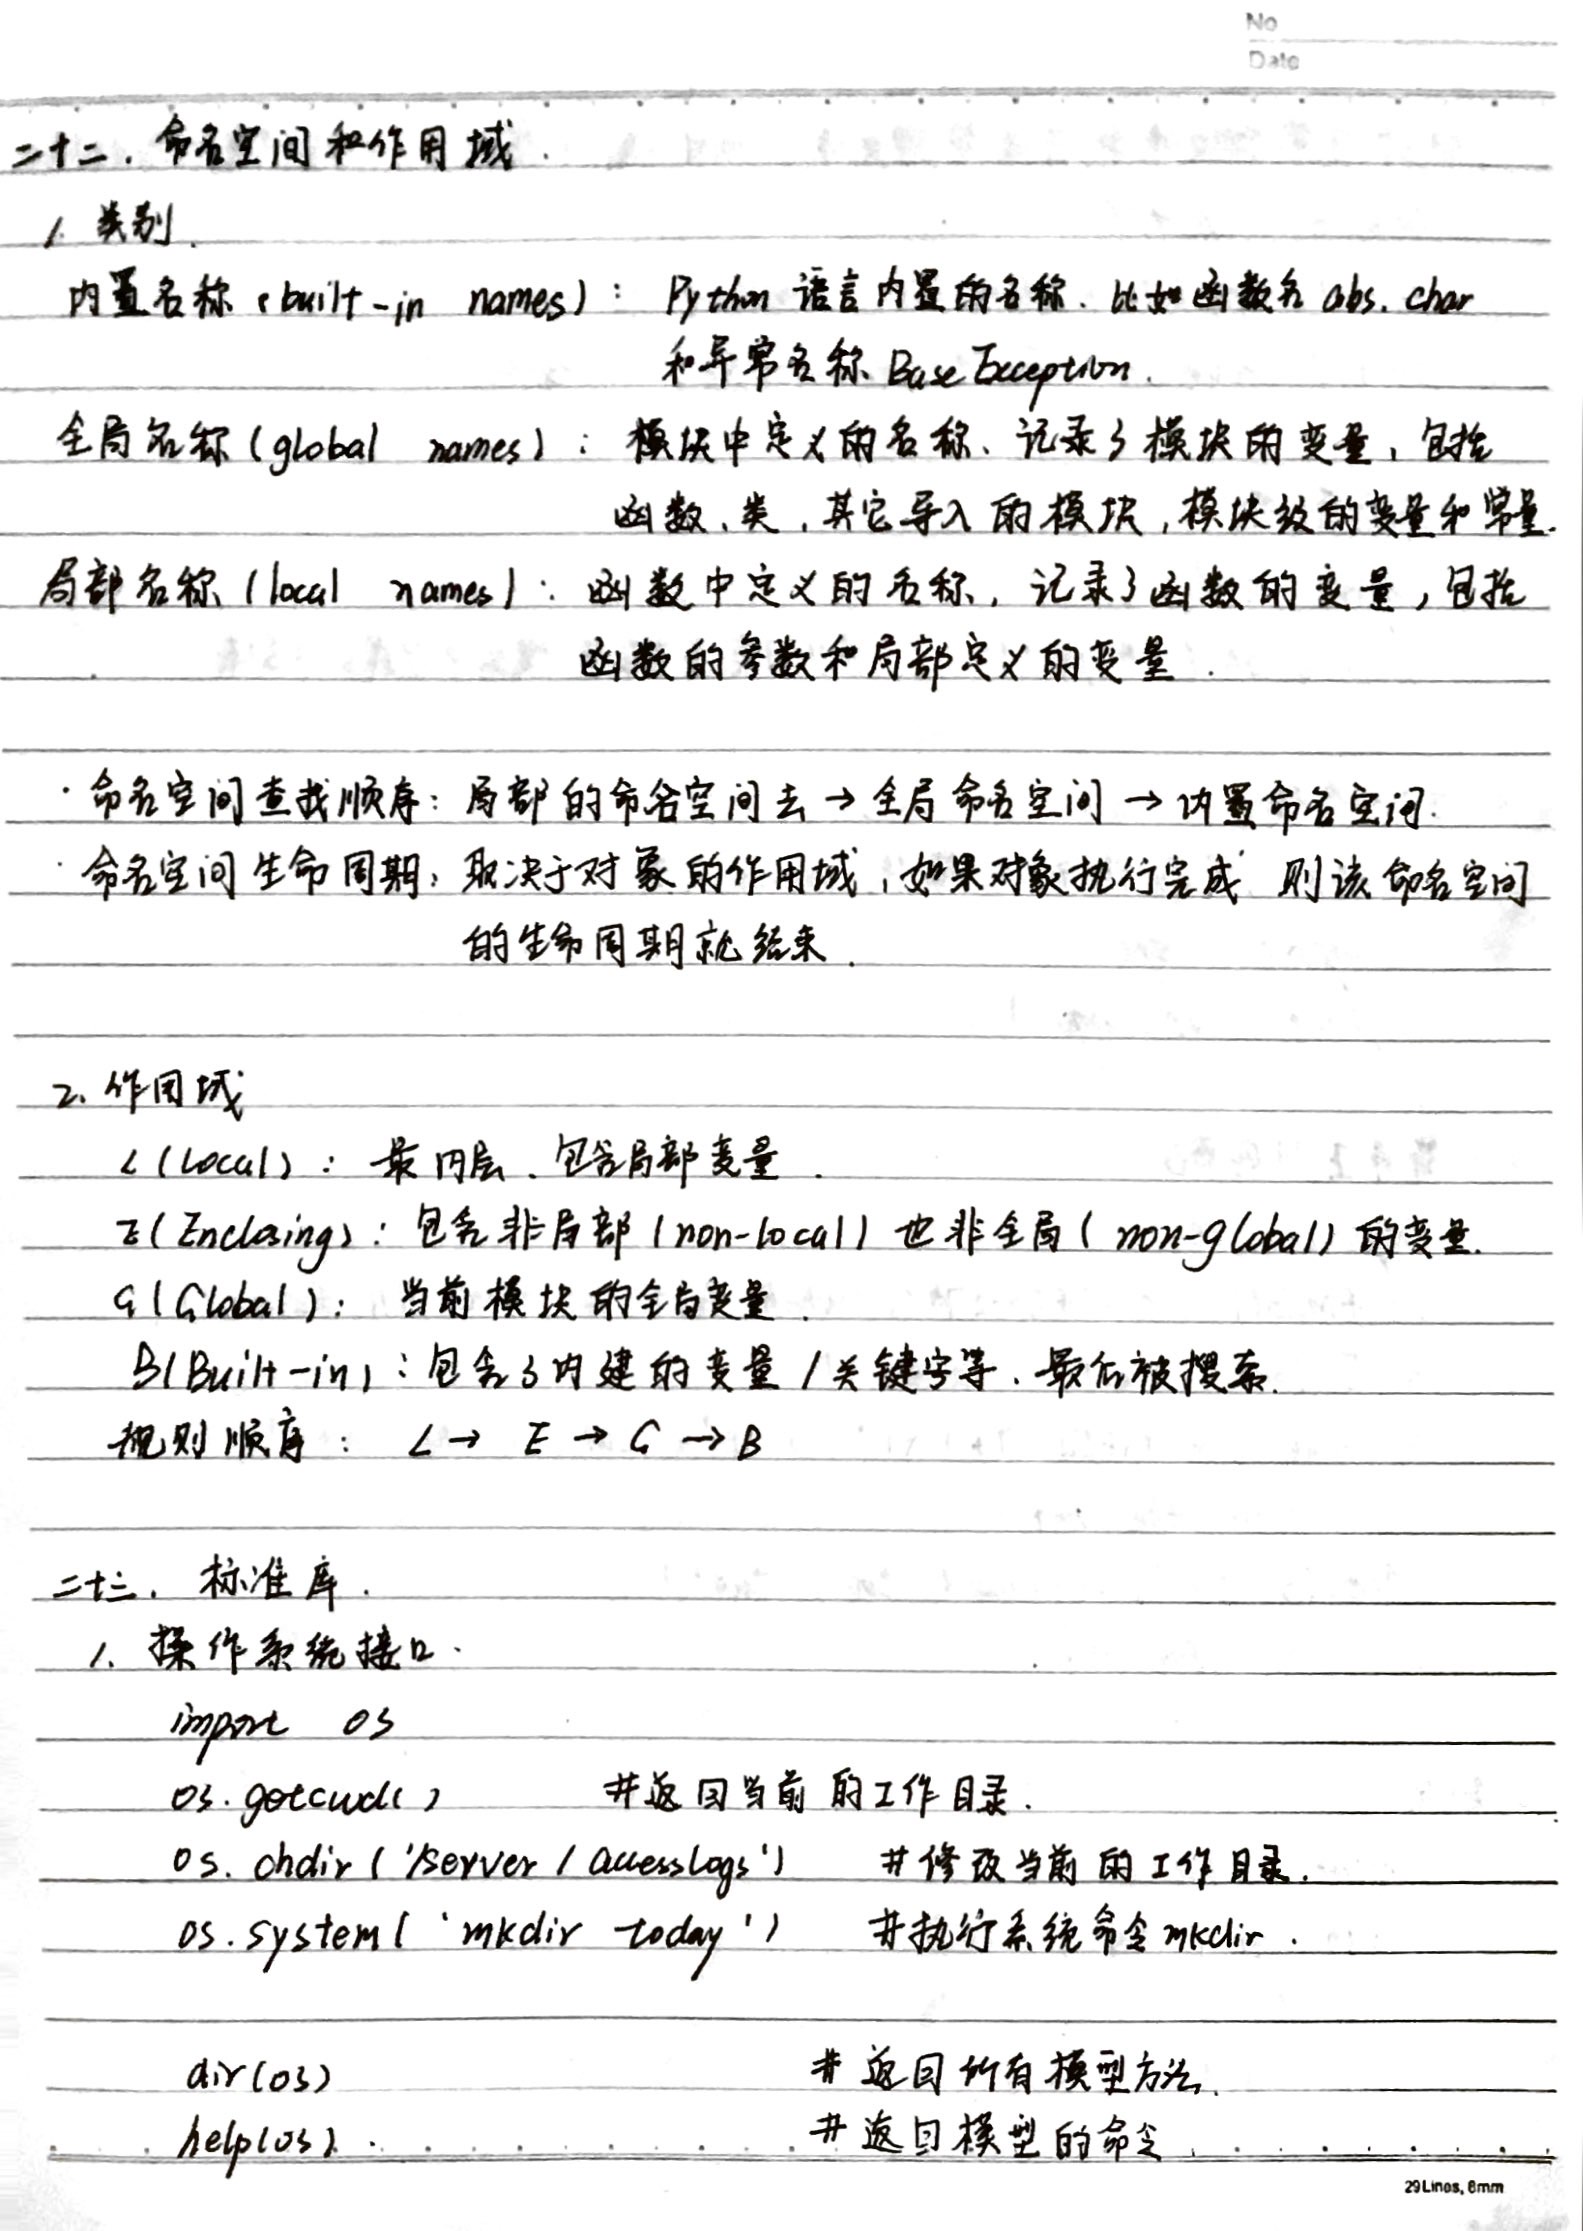 No
Date
二十二. 命名空间和作用域.
1. 类别.
内置名称(built-in names): Python 语言内置的名称. 比如函数名 abs. char
和异常名称 BaseException.
全局名称(global names): 模块中定义的名称、记录了模块的变量, 包括
函数、类, 其它导入的模块, 模块级的变量和常量.
局部名称(local names): 函数中定义的名称, 记录了函数的变量, 包括
函数的参数和局部定义的变量.
·命名空间查找顺序: 局部的命名空间去→全局命名空间→内置命名空间.
·命名空间生命周期: 取决于对象的作用域, 如果对象执行完成 则该命名空间
的生命周期就结束.
2. 作用域
L(Local): 最内层、包含局部变量.
E(Enclosing): 包含非局部(non-local)也非全局(non-global)的变量.
G(Global): 当前模块的全局变量.
B(Built-in): 包含了内建的变量/关键字等、最后被搜索.
规则顺序: L→ E → G → B
二十三. 标准库.
1. 操作系统接口.
import os
os.getcwd() #返回当前的工作目录.
os.chdir('/server/accesslogs') #修改当前的工作目录.
os.system('mkdir today') #执行系统命令mkdir.
dir(os) #返回所有模型方法.
help(os). #返回模型的命令.
29Lines, 8mm